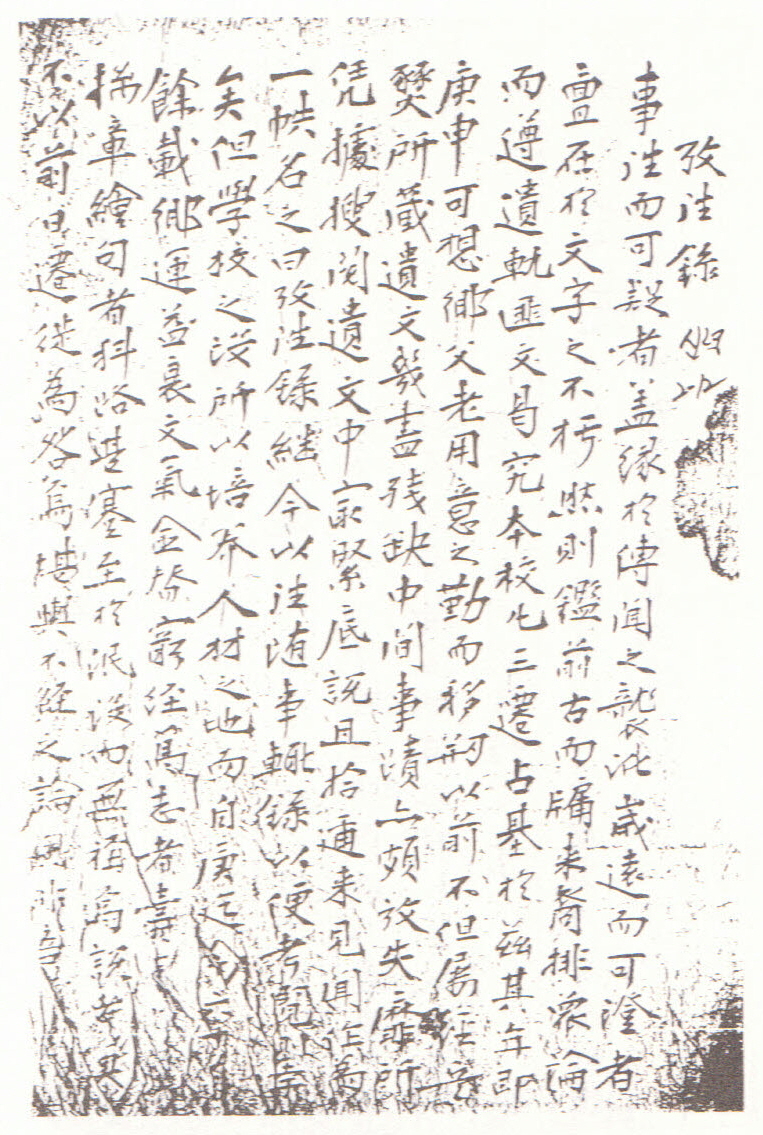 攷往錄
事往而可疑者盖緣於傳聞之襲訛歲遠而可澄者
亶在於文字之不朽然則鑑前古而牖来裔排衆論
而遵遺軌匪文曷究本校凡三遷占基於玆其年即
庚申可想鄕父老用意之勤而移刱以前不但屬經兵
燹所蔵遺文幾盡残缺中間事蹟亦頗放失靡所
凭據搜閲遺文中㝡緊底說且拾邇来見聞作爲
一帙名之曰攷往錄継今以往随事輒錄以便考閱
矣但學校之設所以培养人材之地而自庚迄今
餘載鄕運益衰文氣全替窮經篤志者
摛章繪句者科路幷蹇至於泯没而無稱高談
不以前日遷徙為咎焉堪輿不經之論